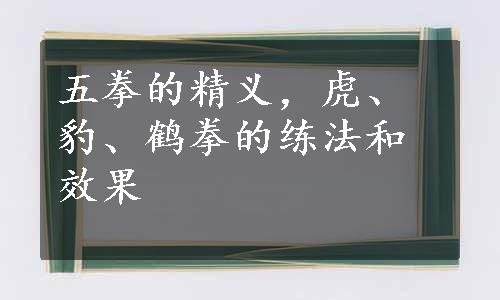 五拳的精义，虎、
豹、鹤拳的练法和
效果